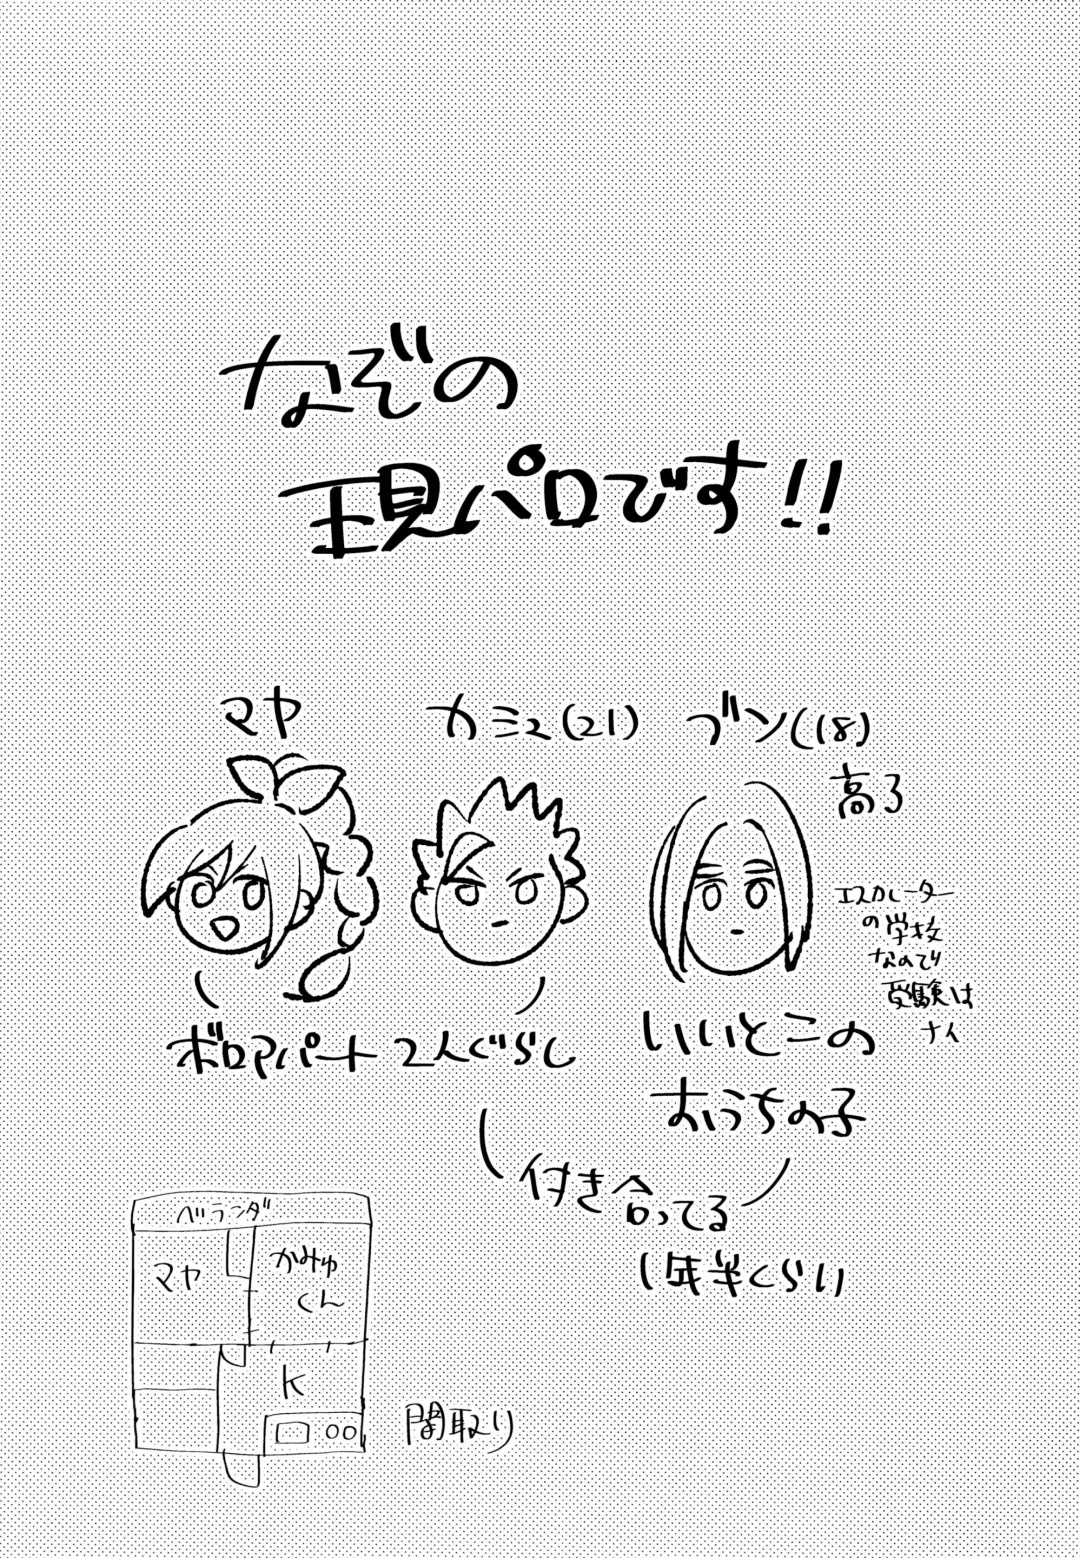 なぞの
現パロです!!
マヤ
カミュ(21)
ブン(18)
高3
エスカレーター
の学校
なので
受験は
ナイ
ボロアパート2人ぐらし
いいとこの
おうちの子
付き合ってる
1年半くらい
ベランダ
マヤ
かみゅ
くん
K
間取り